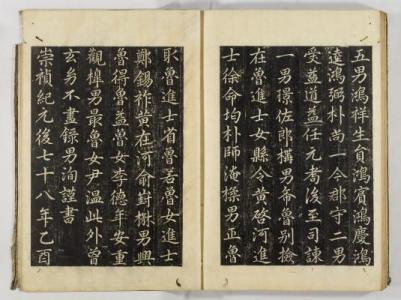 五男鴻祥生貟鴻賓鴻慶鴻
遠鴻弼朴尚一今郡守二男
受益道益任元耉後至司諫
一男佐郎構男希魯別檢
在魯進士女縣令黃啓河進
士徐命均朴師淹男正魯
耿魯進士首魯若魯女進士
鄭錫祚黃在河俞封樹男興
魯得魯益魯女李德年安重
觀樟男最魯女尹溫此外曾
玄多不盡錄男洵謹書
崇禎紀元後七十八年乙酉